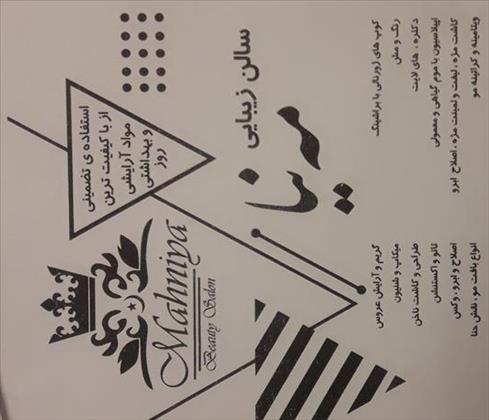 سالن زیبایی
مهرنیا
Mahniya
Beauty Salon
استفاده ی تضمینی
از با کیفیت ترین
مواد آرایشی
و بهداشتی
روز
کوپ های ژورنالی با براشینگ
رنگ و مش
دکلره ، های لایت
اپیلاسیون با موم گیاهی و معمولی
کاشت مژه ، لیفت و لمینت مژه ، اصلاح ابرو
ویتامینه و کراتینه مو
گریم و آرایش عروس
میکاپ و شنیون
طراحی و کاشت ناخن
تاتو و اکستنشن
اصلاح و ابرو ، وکس
انواع بافت مو، نقش حنا